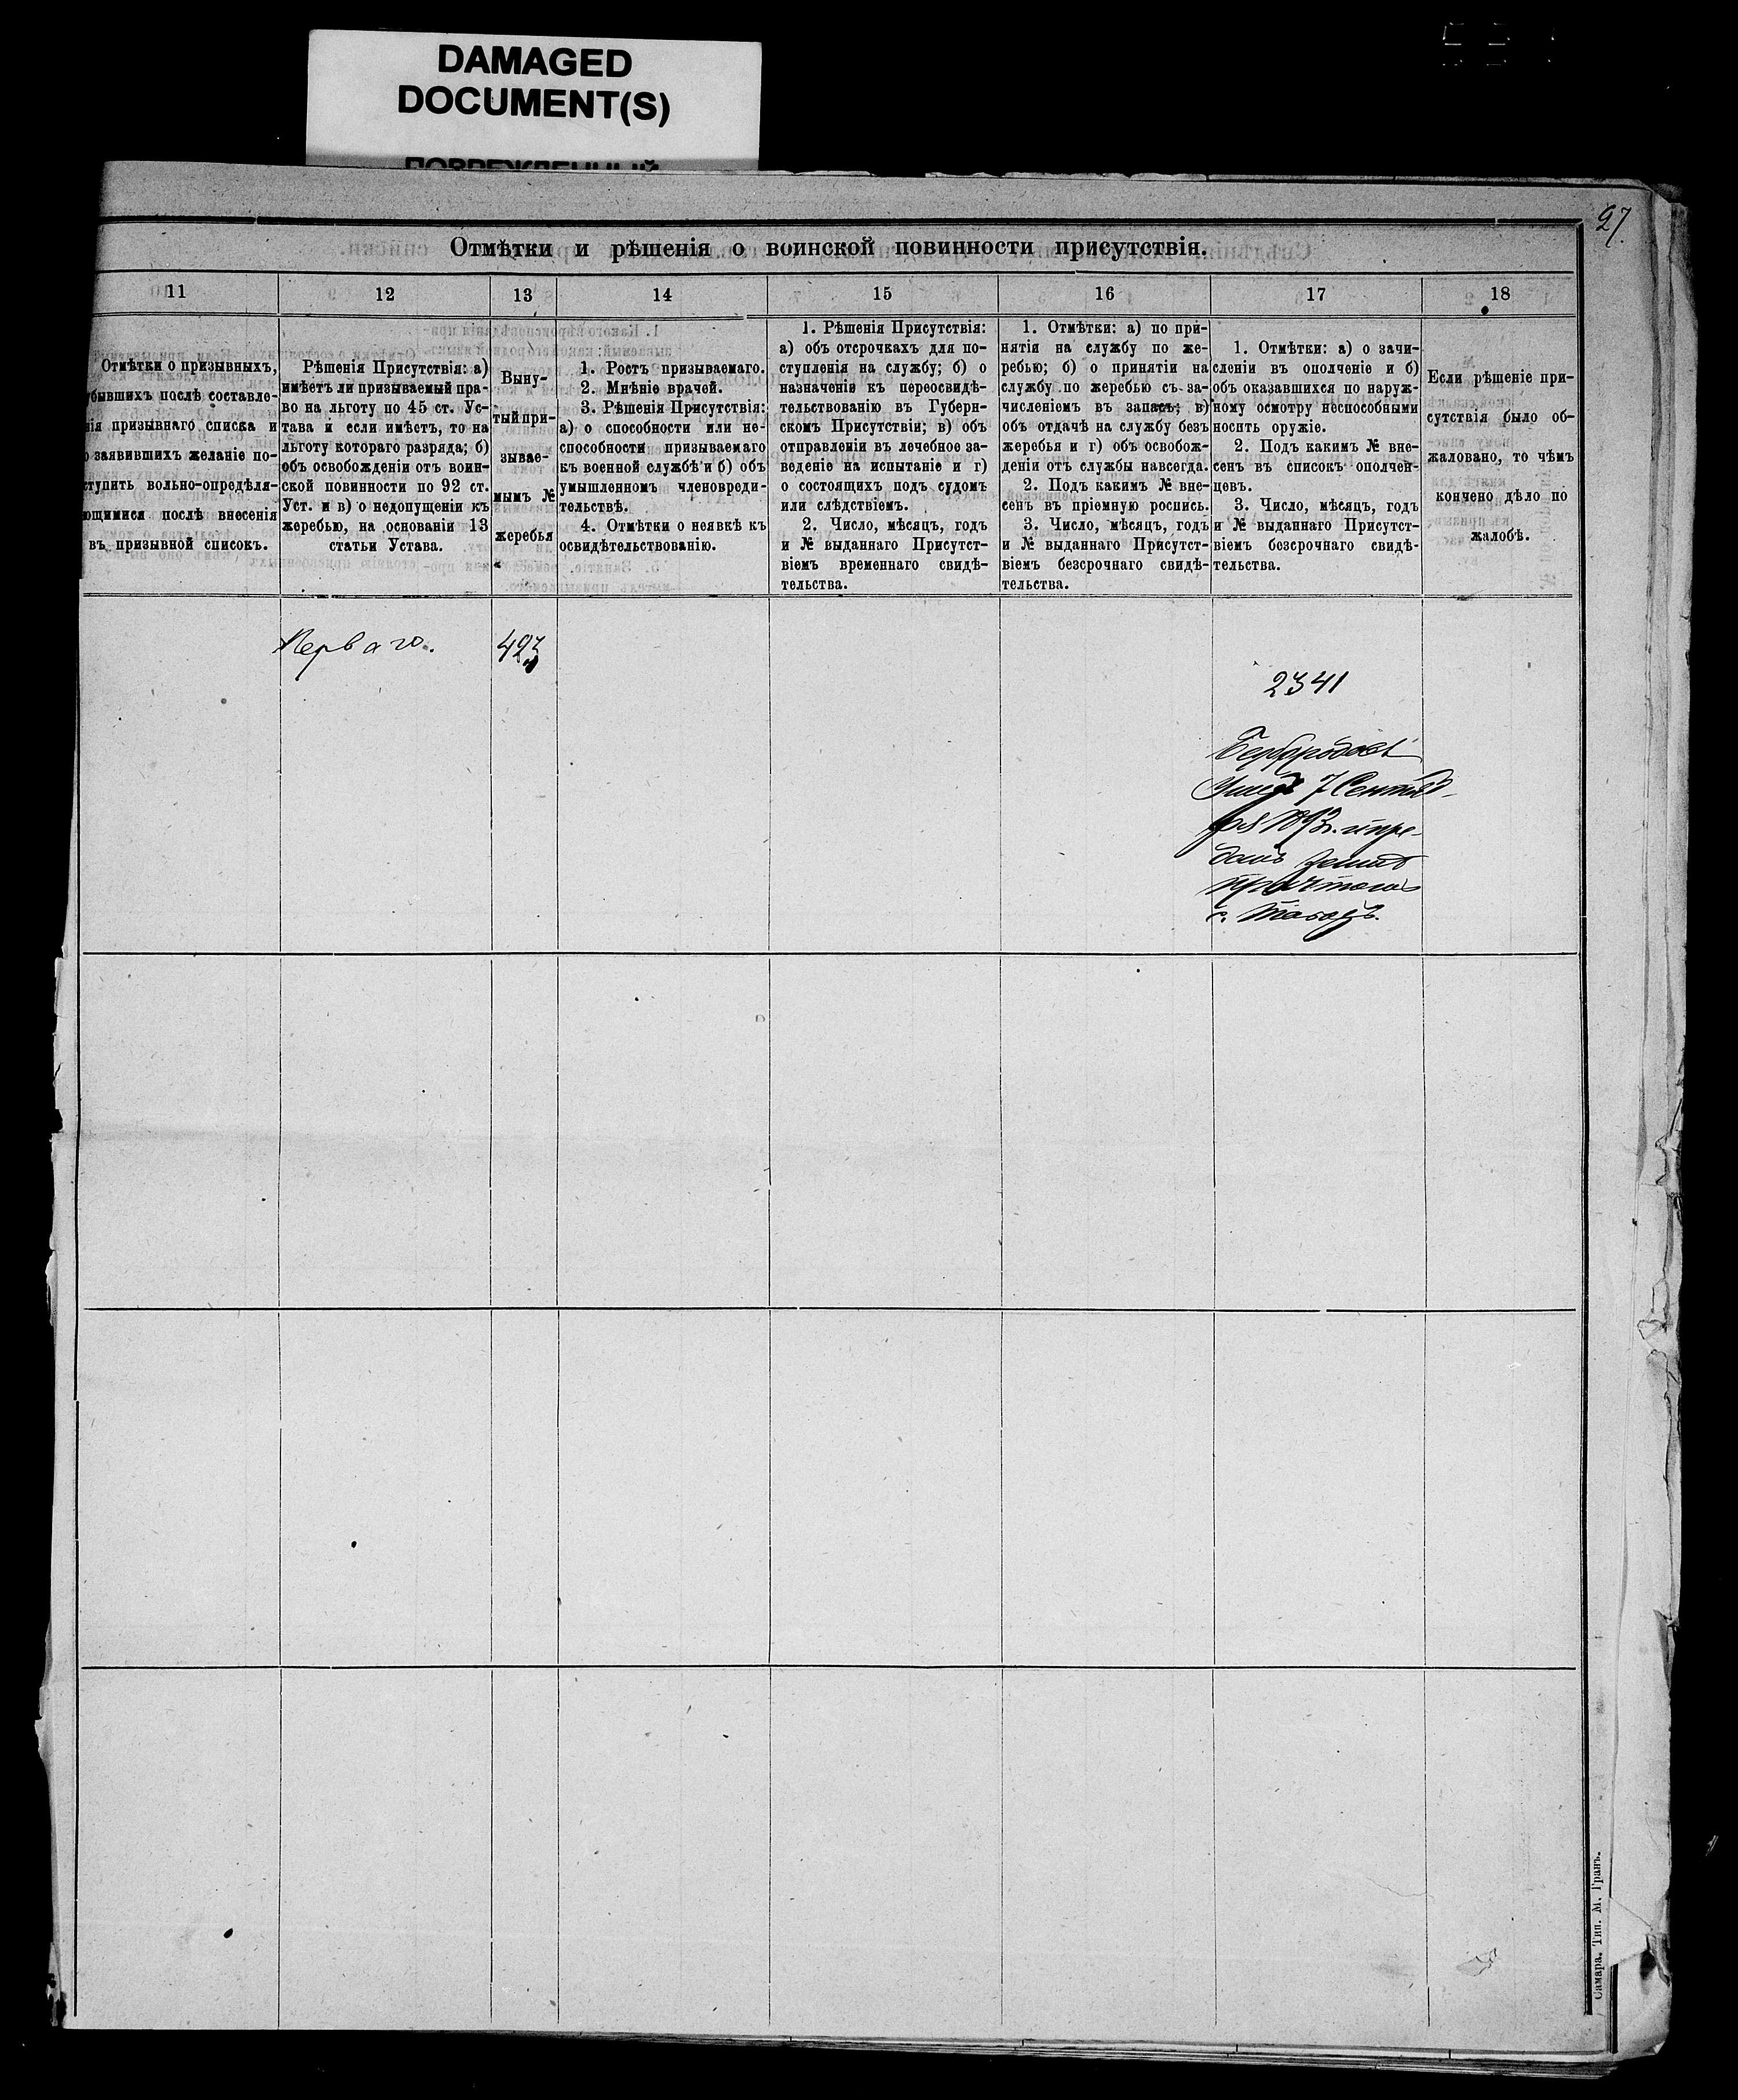 DAMAGED
DOCUMENT(S)
ПОВРЕЖДЕННЫЙ
97.
Отмѣтки и рѣшенія о воинской повинности присутствія.
11
12
13
14
15
16
17
18
Отмѣтки о призывныхъ,
убывшихъ послѣ составле-
нія призывнаго списка и
о заявившихъ желаніе по-
ступить вольно-опредѣля-
ющимися послѣ внесенія
въ призывной списокъ.
Рѣшенія Присутствія: а)
имѣетъ ли призываемый пра-
во на льготу по 45 ст. Ус-
тава и если имѣетъ, то на
льготу котораго разряда; б)
объ освобожденіи отъ воин-
ской повинности по 92 ст.
Уст. и в) о недопущеніи къ
жеребью, на основаніи 13
статьи Устава.
Выну-
тый при-
зывае-
мымъ №
жеребья
1. Ростъ призываемаго.
2. Мнѣніе врачей.
3. Рѣшенія Присутствія:
а) о способности или не-
способности призываемаго
къ военной службѣ и б) объ
умышленномъ членовреди-
тельствѣ.
4. Отмѣтки о неявкѣ къ
освидѣтельствованію.
1. Рѣшенія Присутствія:
а) объ отсрочкахъ для по-
ступленія на службу; б) о
назначеніи къ переосвидѣ-
тельствованію въ Губерн-
скомъ Присутствіи; в) объ
отправленіи въ лечебное за-
веденіе на испытаніе и г)
о состоящихъ подъ судомъ
или слѣдствіемъ.
2. Число, мѣсяцъ, годъ
и № выданнаго Присутст-
віемъ временнаго свидѣ-
тельства.
1. Отмѣтки: а) по при-
нятія на службу по же-
ребью; б) о принятіи на
службу по жеребью съ за-
численіемъ въ запасъ; в)
объ отдачѣ на службу безъ
жеребья и г) объ освобож-
деніи отъ службы навсегда.
2. Подъ какимъ № вне-
сенъ въ пріемную роспись.
3. Число, мѣсяцъ, годъ
и № выданнаго Присутст-
віемъ безсрочнаго свидѣ-
тельства.
1. Отмѣтки: а) о зачи-
сленіи въ ополченіе и б)
объ оказавшихся по наруж-
ному осмотру неспособными
носить оружіе.
2. Подъ какимъ № вне-
сенъ въ списокъ ополчен-
цевъ.
3. Число, мѣсяцъ, годъ
и № выданнаго Присутст-
віемъ безсрочнаго свидѣ-
тельства.
Если рѣшеніе при-
сутствія было об-
жаловано, то чѣмъ
кончено дѣло по
жалобѣ.
Перваго.
423
2341
7 Сентяб-
ря 1893г. и пре-
данъ земль
причтомъ
с.
Самара. Тип. М. Гранъ.